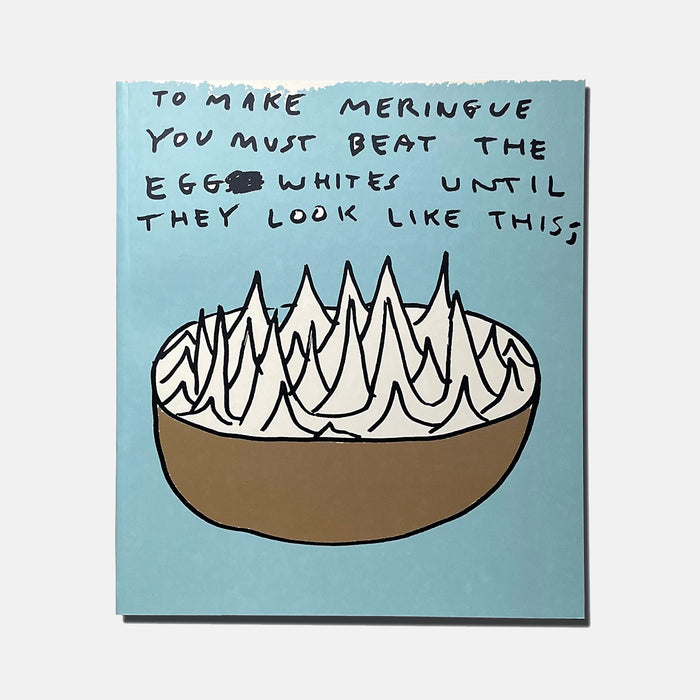 TO MAKE MERINGUE
YOU MUST BEAT THE
EGG WHITES UNTIL
THEY LOOK LIKE THIS;